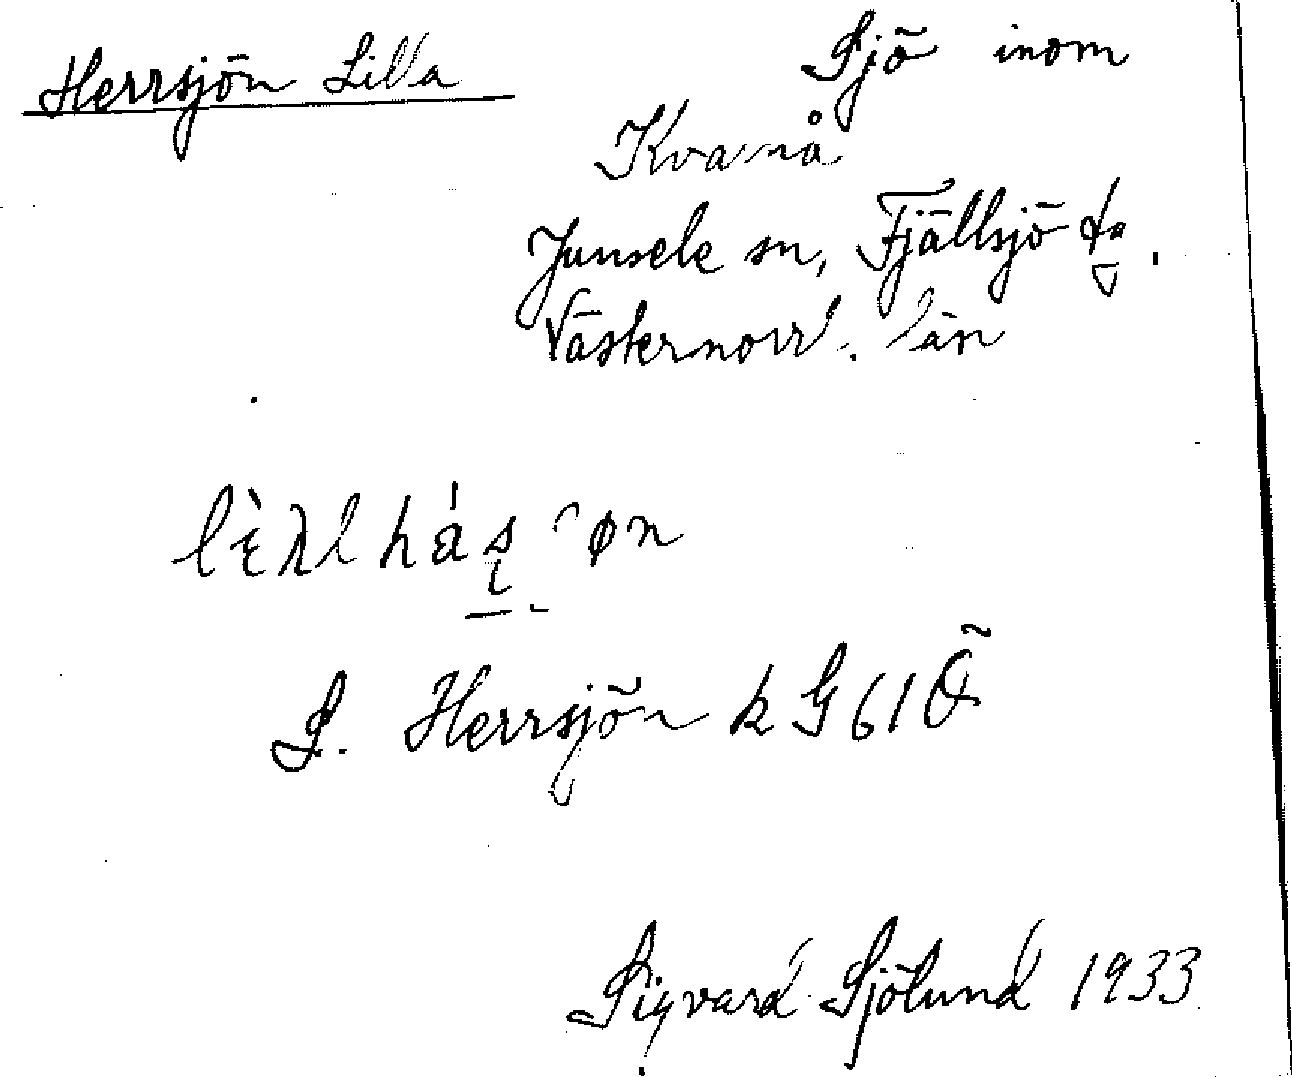 Herrsjön Lilla
Sjö inom
Kvarnå
Junsele sn, Fjällsjö tg.
Västernorrl. län
L. Herrsjön k G 61 Ö
Sigvard Sjölund 1933